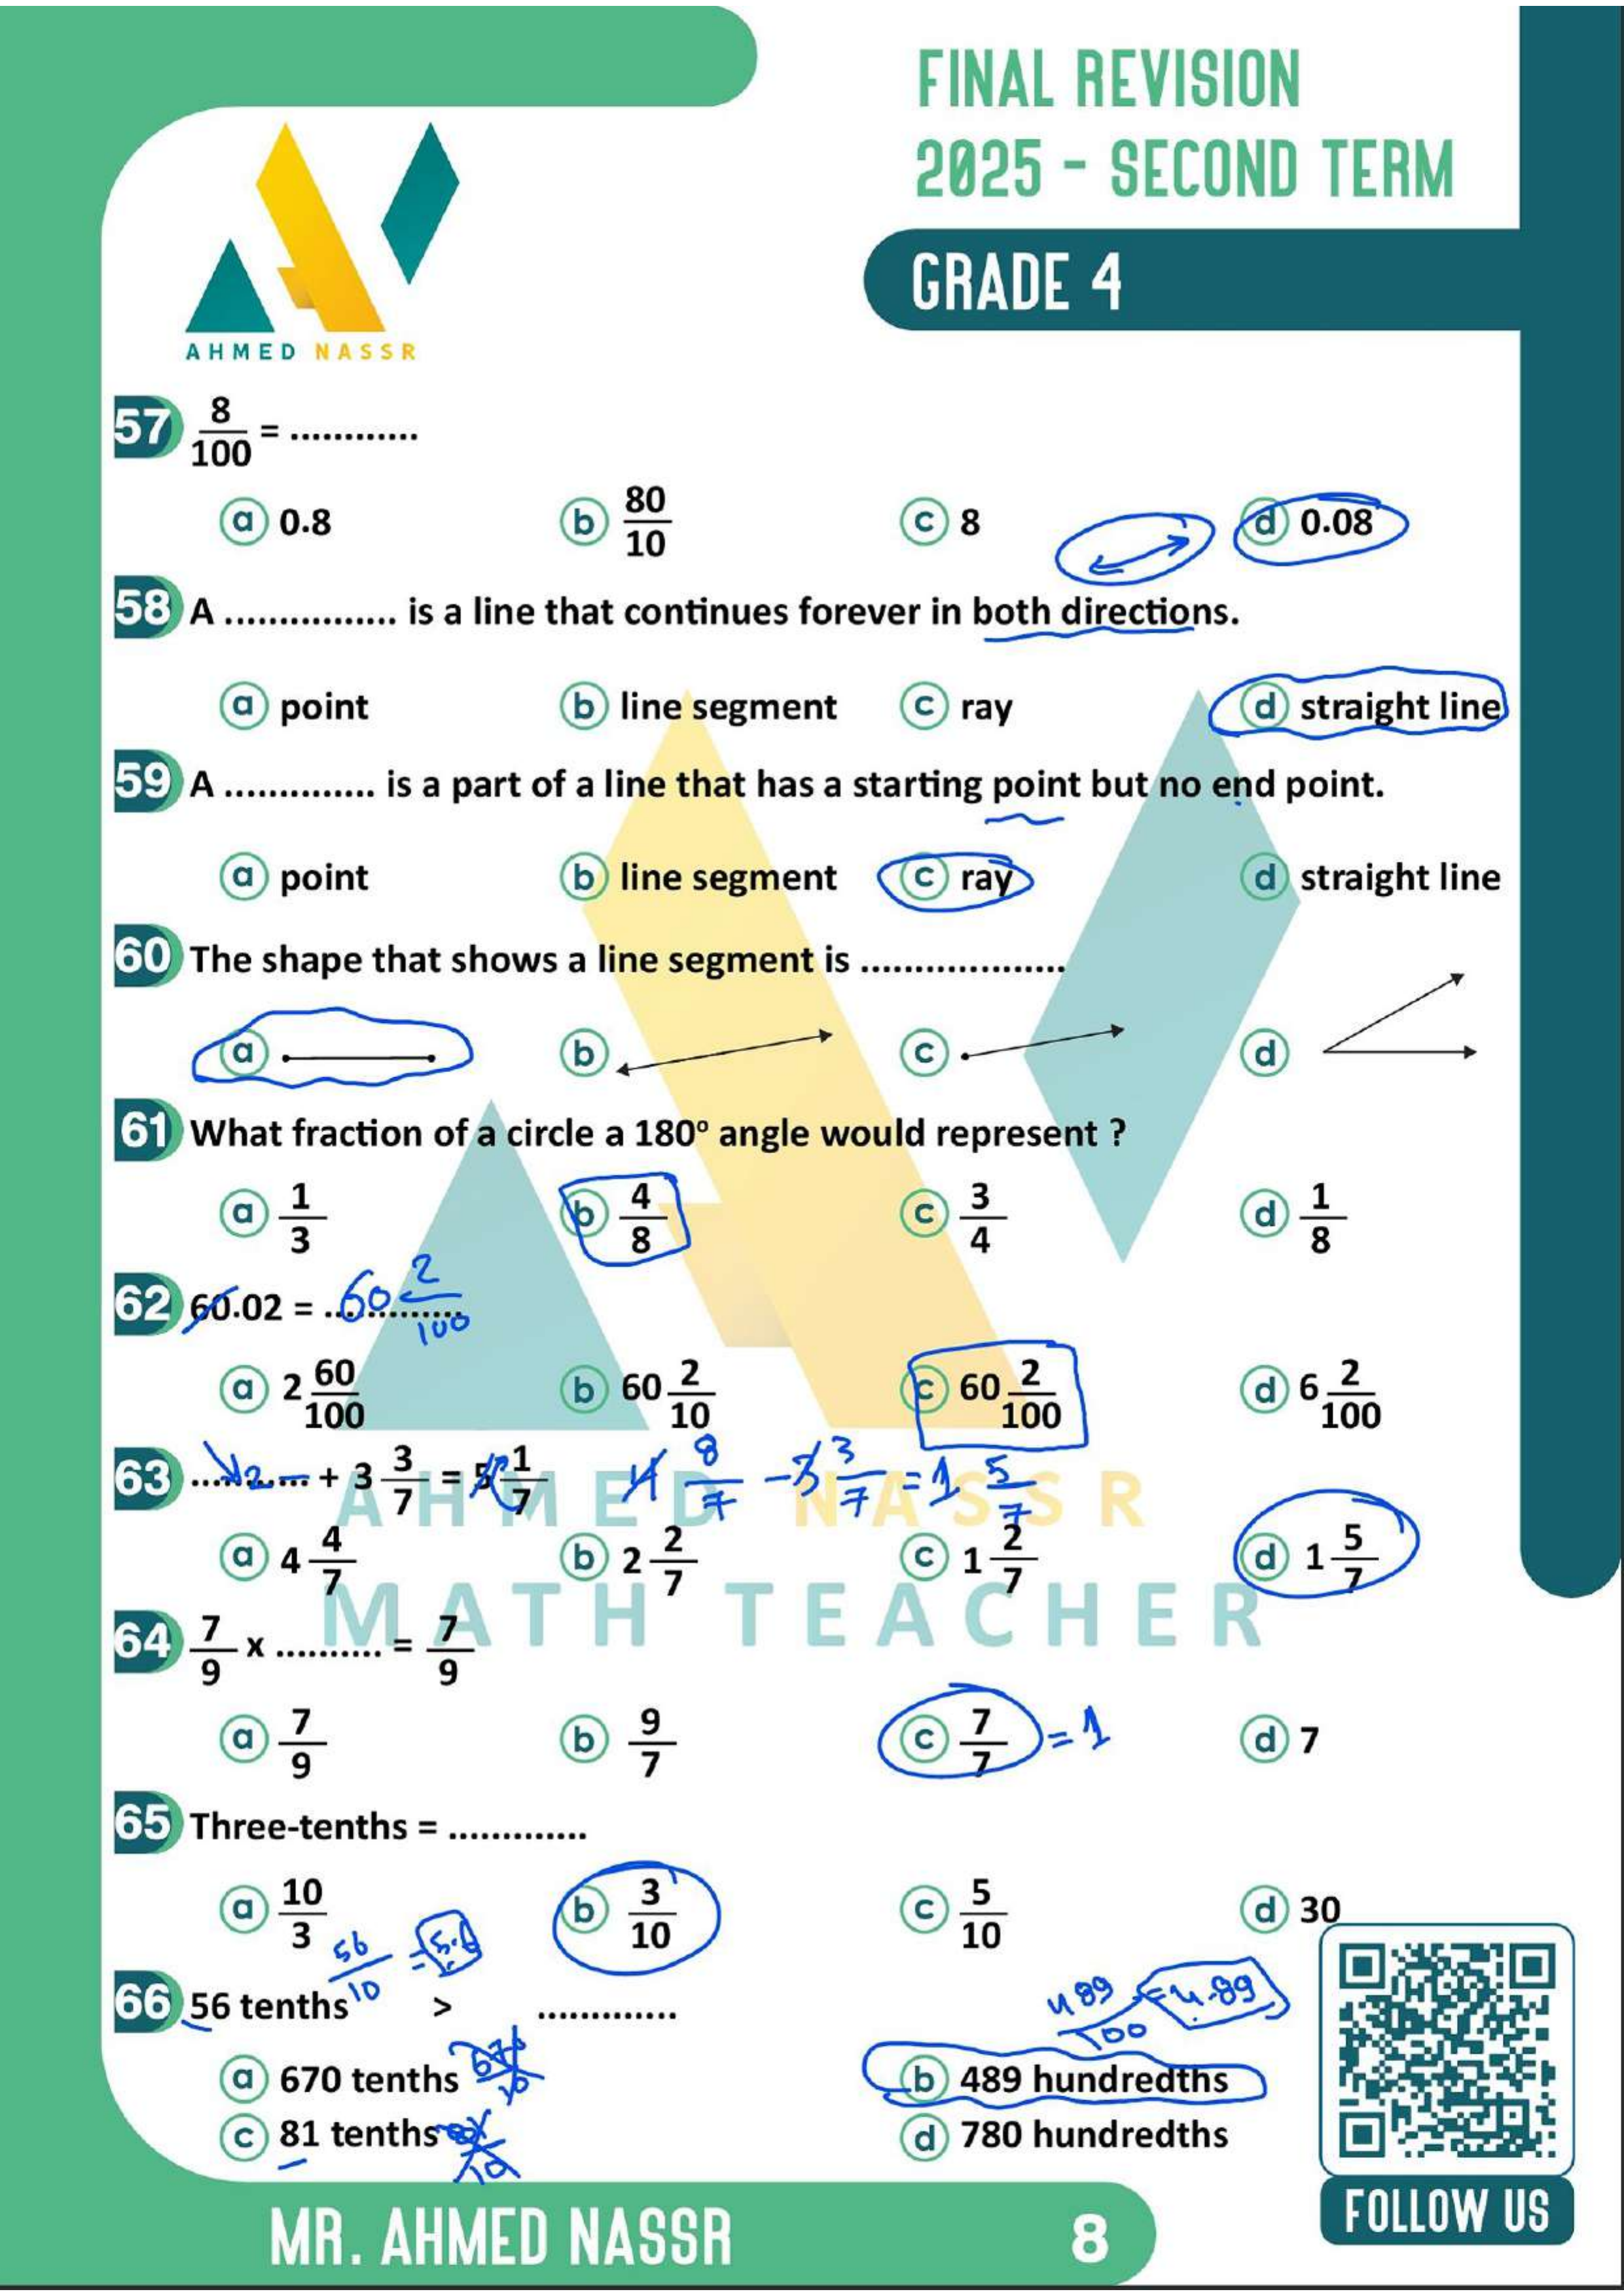 FINAL REVISION
2025 - SECOND TERM
GRADE 4
AHMED NASSR
57 8/100 = ............
a 0.8 b 80/10 c 8 d 0.08
58 A ................ is a line that continues forever in both directions.
a point b line segment c ray d straight line
59 A .............. is a part of a line that has a starting point but no end point.
a point b line segment c ray d straight line
60 The shape that shows a line segment is ...................
a b c d
61 What fraction of a circle a 180° angle would represent ?
a 1/3 b 4/8 c 3/4 d 1/8
62 60.02 = ............. 60 2/100
a 2 60/100 b 60 2/10 c 60 2/100 d 6 2/100
63 ........... + 3 3/7 = 5 1/7 4 8/7 - 3 3/7 = 1 5/7
a 4 4/7 b 2 2/7 c 1 2/7 d 1 5/7
AHMED NASSR
MATH TEACHER
64 7/9 x .......... = 7/9
a 7/9 b 9/7 c 7/7 = 1 d 7
65 Three-tenths = .............
a 10/3 b 3/10 c 5/10 d 30
56/10 = 5.6
66 56 tenths > .............
489/100 = 4.89
a 670 tenths b 489 hundredths
c 81 tenths d 780 hundredths
MR. AHMED NASSR
8
FOLLOW US